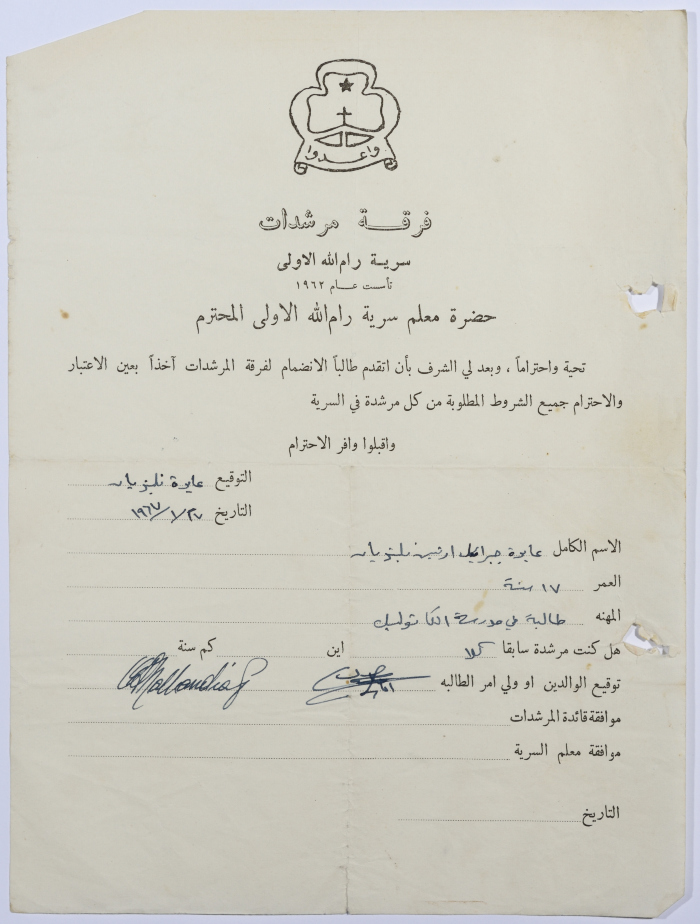 واعدوا
فرقة مرشدات
سرية رام الله الاولى
تأسست عام ١٩٦٢
حضرة معلم سرية رام الله الاولى المحترم
تحية واحتراماً ، وبعد لي الشرف بأن اتقدم طالباً الانضمام لفرقة المرشدات آخذاً بعين الاعتبار
والاحترام جميع الشروط المطلوبة من كل مرشدة في السرية
واقبلوا وافر الاحترام
التوقيع عايدة نلبنديان
التاريخ ٢٧/١/١٩٦٧
الاسم الكامل عايدة جبرائيل نلبنديان
العمر ١٧ سنة
المهنه طالبة في مدرسة الكاثوليك
هل كنت مرشدة سابقا كلا اين كم سنة
توقيع الوالدين او ولي امر الطالبه
موافقة قائدة المرشدات
موافقة معلم السرية
التاريخ